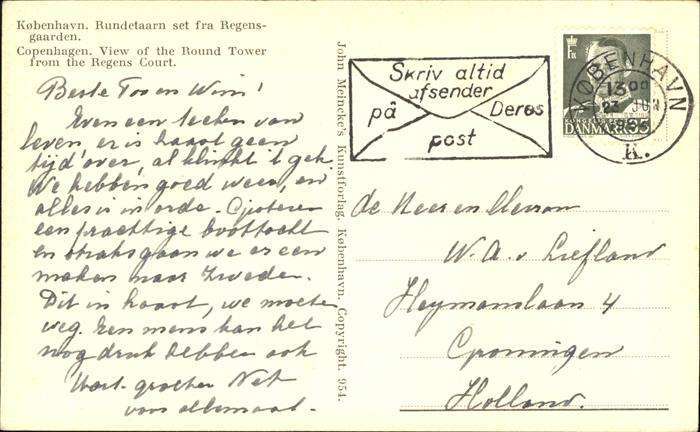 København. Rundetaarn set fra Regens-
gaarden.
Copenhagen. View of the Round Tower
from the Regens Court.
Beste Too en Wim!
Even een teeken van
leven, er is haast geen
tijd over, al klinkt 't gek.
We hebben goed weer, en
alles is in orde. Gisteren
een prachtige boottocht
en straks gaan we er een
maken naar Zweden.
Dit in haast, we moeten
weg. Een mens kan het
nog druk hebben ook
Hart. groeten Net
voor allemaal.
John Meincke's Kunstforlag. København. Copyright. 954.
Skriv altid
afsender
på Deres
post
KØBENHAVN
13 00
23 JUN
195
K.
DANMARK 35
de Heer en Mevrouw
W. A. v Liefland
Heymanslaan 4
Groningen
Holland.